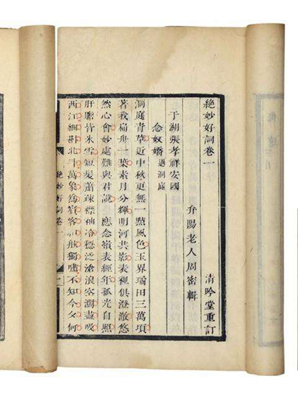 絶妙好詞卷一
弁陽老人周密輯
清吟堂重訂
于湖張孝祥安國
念奴嬌 過洞庭
洞庭青草近中秋更無一點風色玉界瓊田三萬頃
著我扁舟一葉素月分輝明河共影表裏俱澄澈悠
然心會妙處難與君說 應念嶺表經年孤光自照
肝膽皆冰雪短髮蕭疎襟袖冷穩泛滄浪空闊盡
西江細斟北斗萬象為賓客扣舷獨嘯不知今夕何
絶妙好詞 卷一